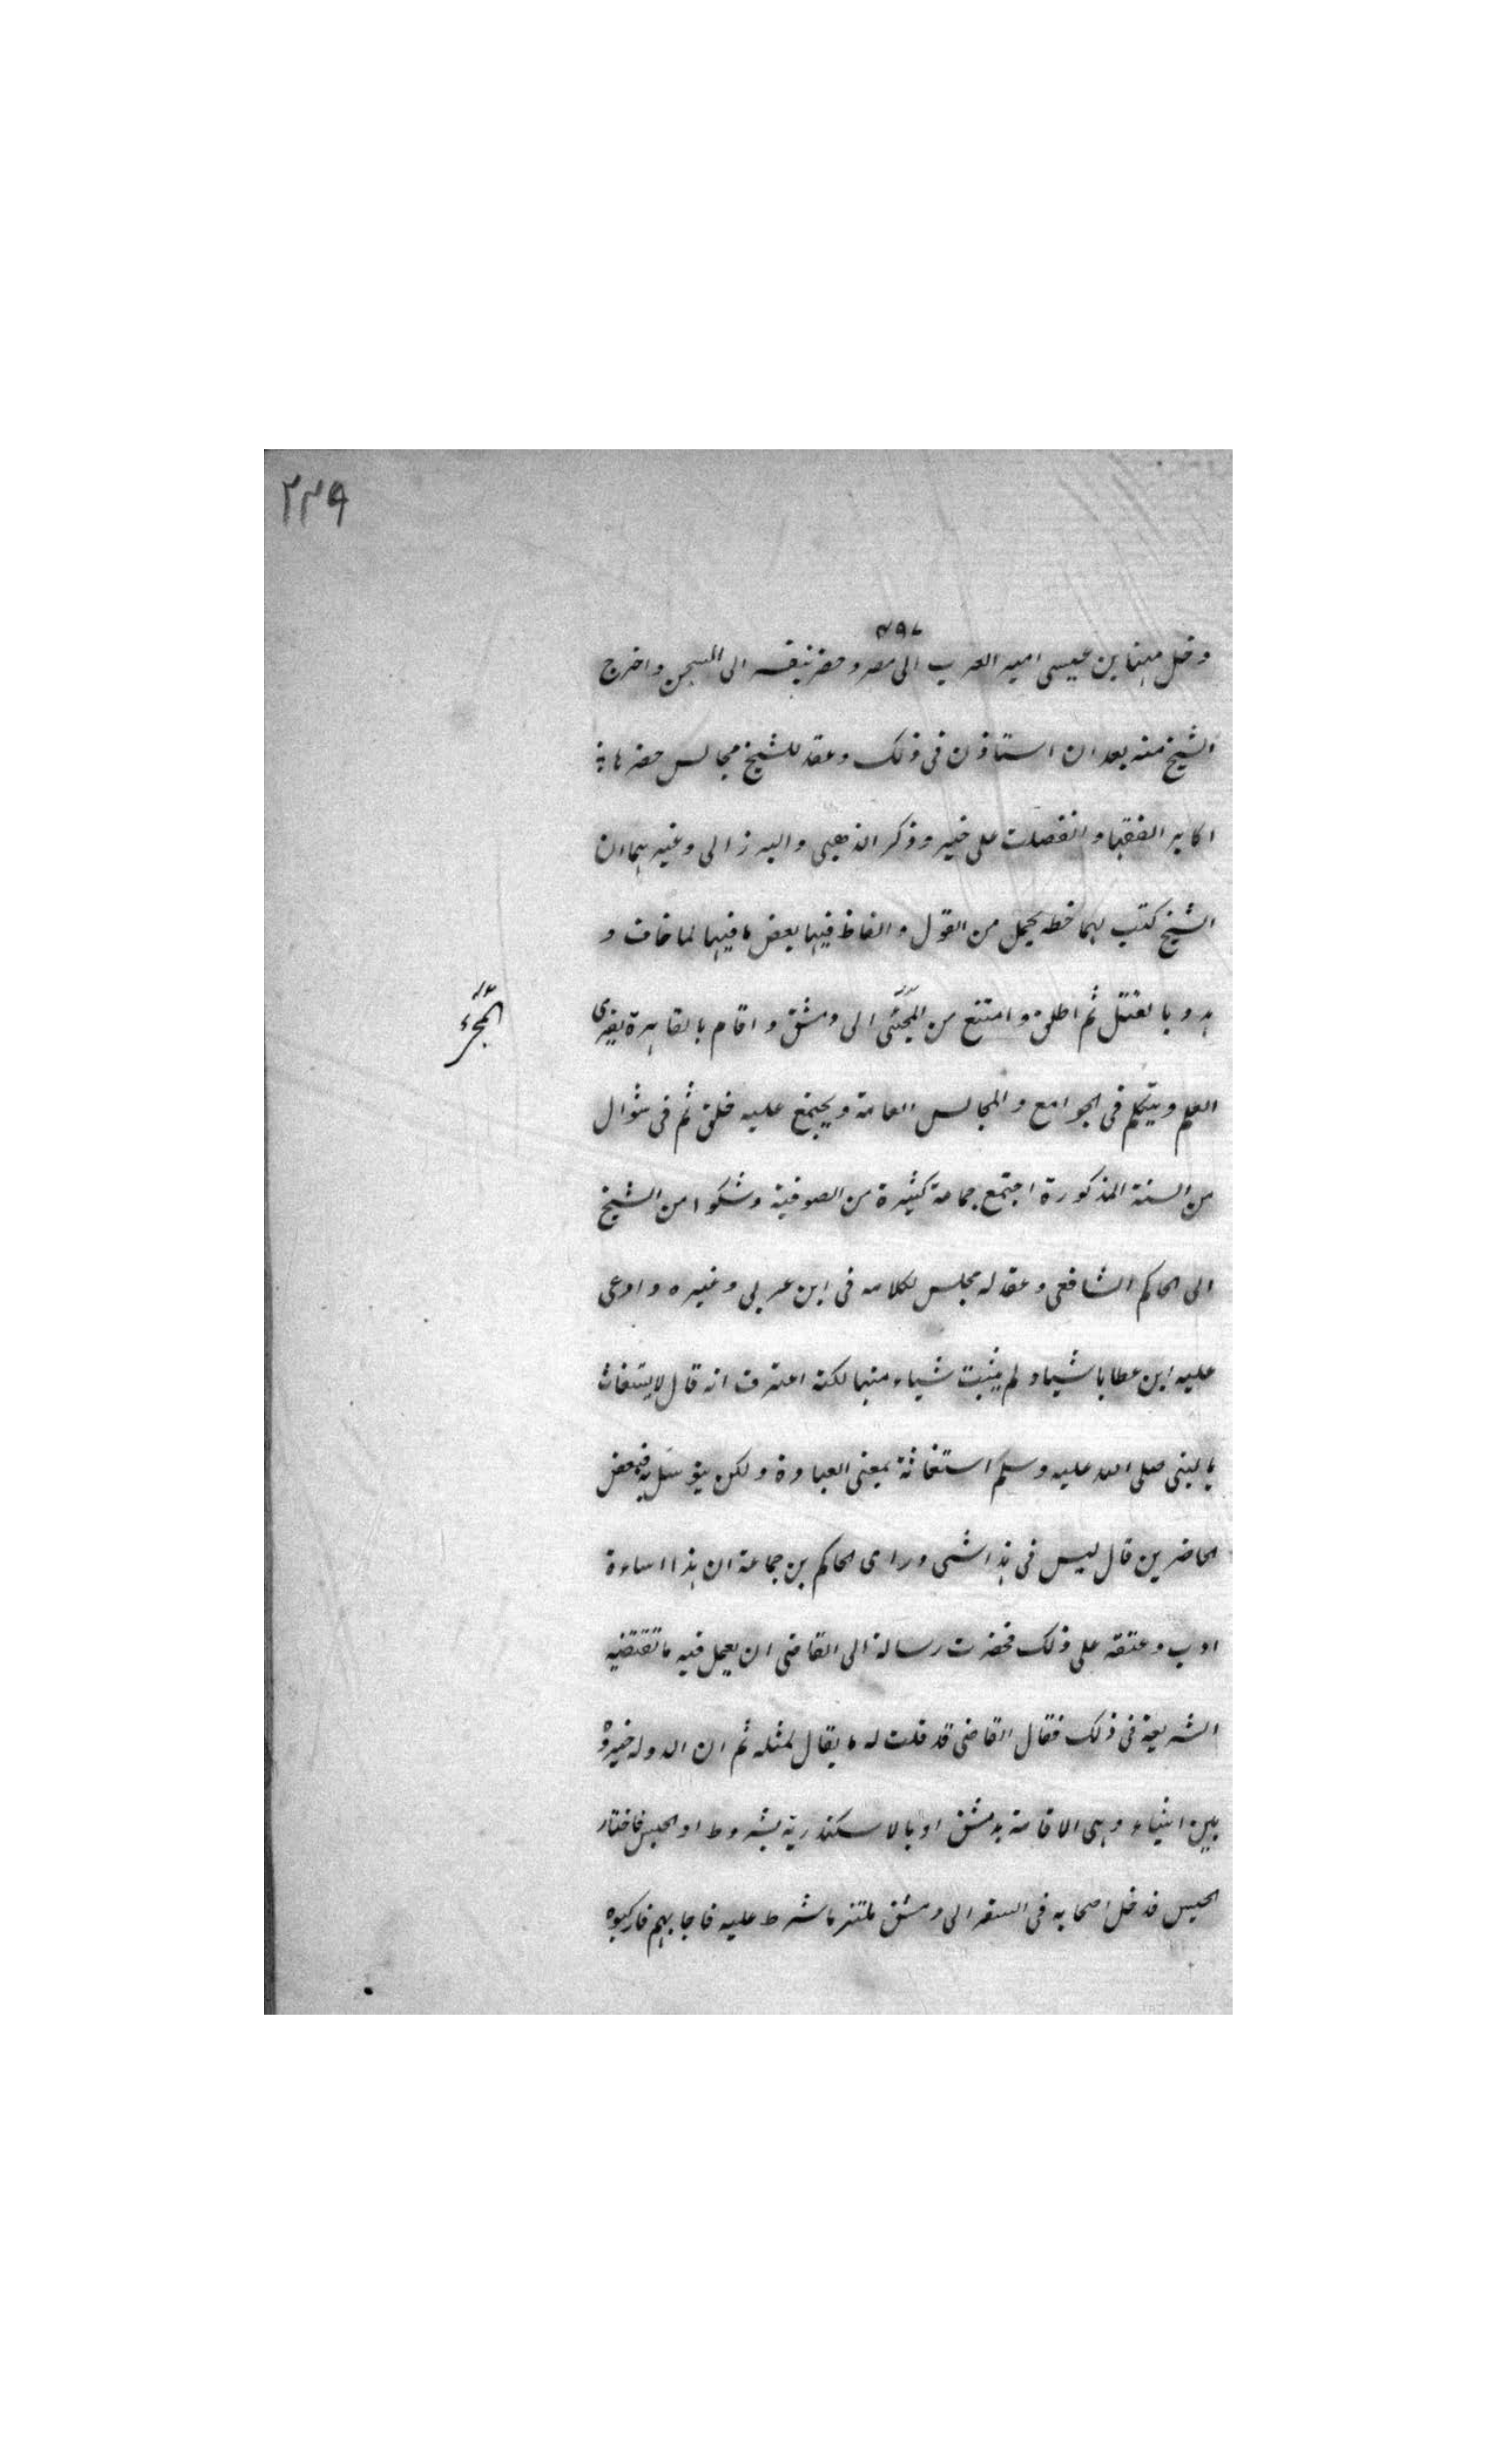 ٢٢٩
٤٩٧
دخل مهنا بن عيسى امير العرب الى مصر وحضر بنفسه الى السجن واخرج
الشيخ منه بعد ان استاذن فى ذلك وعقد للشيخ مجالس حضرها
اكابر الفقها وانفصلت على خير وذكر الذهبى والبرزالى وغيرهما ان
الشيخ كتب لهما خطه بجمل من القول والفاظ فيها بعض ما فيها لما خاف و
هدد بالقتل ثم اطلق وامتنع من المجئى الى دمشق واقام بالقاهرة يقرى
العلم ويتكلم فى الجوامع والمجالس العامة ويجتمع عليه خلق ثم فى شوال
من السنة المذكورة اجتمع جماعة كثيرة من الصوفية وشكوا من الشيخ
الى الحاكم الشافعى وعقد له مجلس لكلامه فى ابن عربى وغيره وادعى
عليه ابن عطا باشياء ولم يثبت شياء منها لكنه اعترف انه قال لا يستغاث
بالنبى صلى الله عليه وسلم استغاثة بمعنى العبادة ولكن يتوسل به فبعض
الحاضرين قال ليس فى هذا شى وراى الحاكم بن جماعة ان هذا اساءة
ادب وعنفه على ذلك فحضرت رسالة الى القاضى ان يعمل فيه ما تقتضيه
الشريعة فى ذلك فقال القاضى قد قلت له ما يقال لمثله ثم ان الدولة خيروه
بين اشياء وهى الاقامة بدمشق او بالاسكندرية بشروط او الحبس فاختار
الحبس فدخل اصحابه فى السفر الى دمشق ملتزما شرط عليه فاجابهم فاركبوه